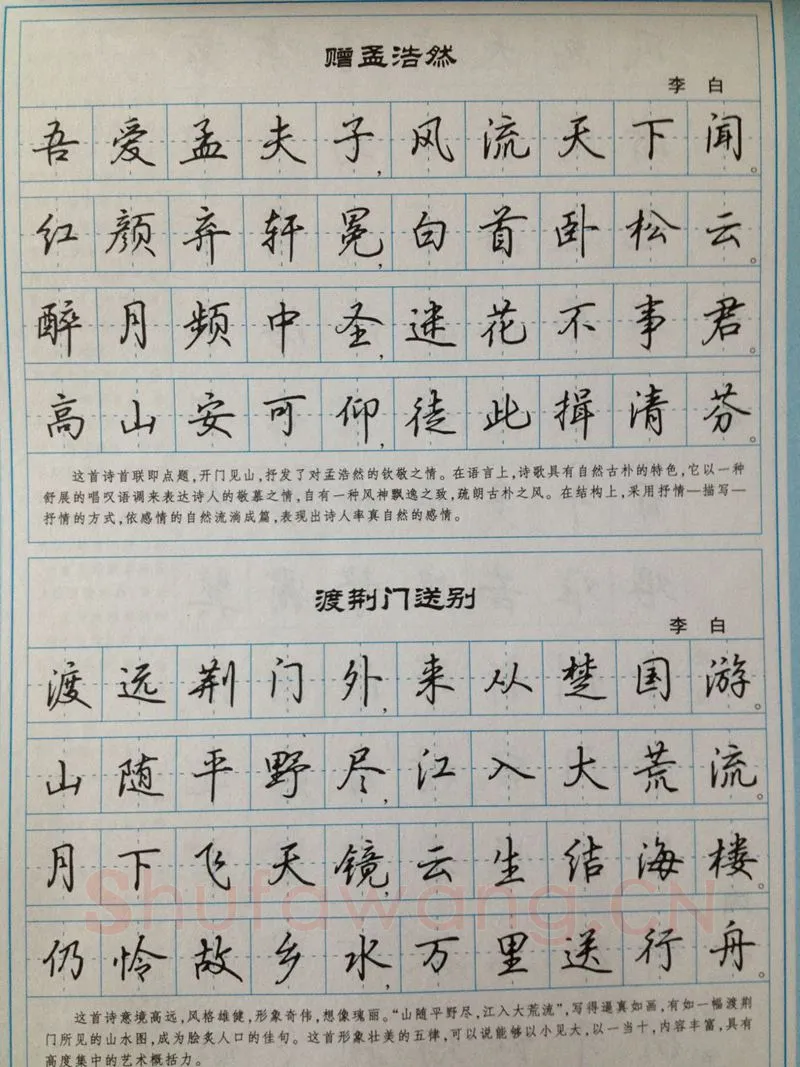 赠孟浩然
李 白
吾爱孟夫子,风流天下闻。
红颜弃轩冕,白首卧松云。
醉月频中圣,迷花不事君。
高山安可仰,徒此揖清芬。
这首诗首联即点题,开门见山,抒发了对孟浩然的钦敬之情。在语言上,诗歌具有自然古朴的特色,它以一种
舒展的唱叹语调来表达诗人的敬慕之情,自有一种风神飘逸之致,疏朗古朴之风。在结构上,采用抒情—描写—
抒情的方式,依感情的自然流淌成篇,表现出诗人率真自然的感情。
渡荆门送别
李 白
渡远荆门外,来从楚国游。
山随平野尽,江入大荒流。
月下飞天镜,云生结海楼。
仍怜故乡水,万里送行舟。
这首诗意境高远,风格雄健,形象奇伟,想像瑰丽。“山随平野尽,江入大荒流”,写得逼真如画,有如一幅渡荆
门所见的山水图,成为脍炙人口的佳句。这首形象壮美的五律,可以说能够以小见大,以一当十,内容丰富,具有
高度集中的艺术概括力。
Shufawang.CN